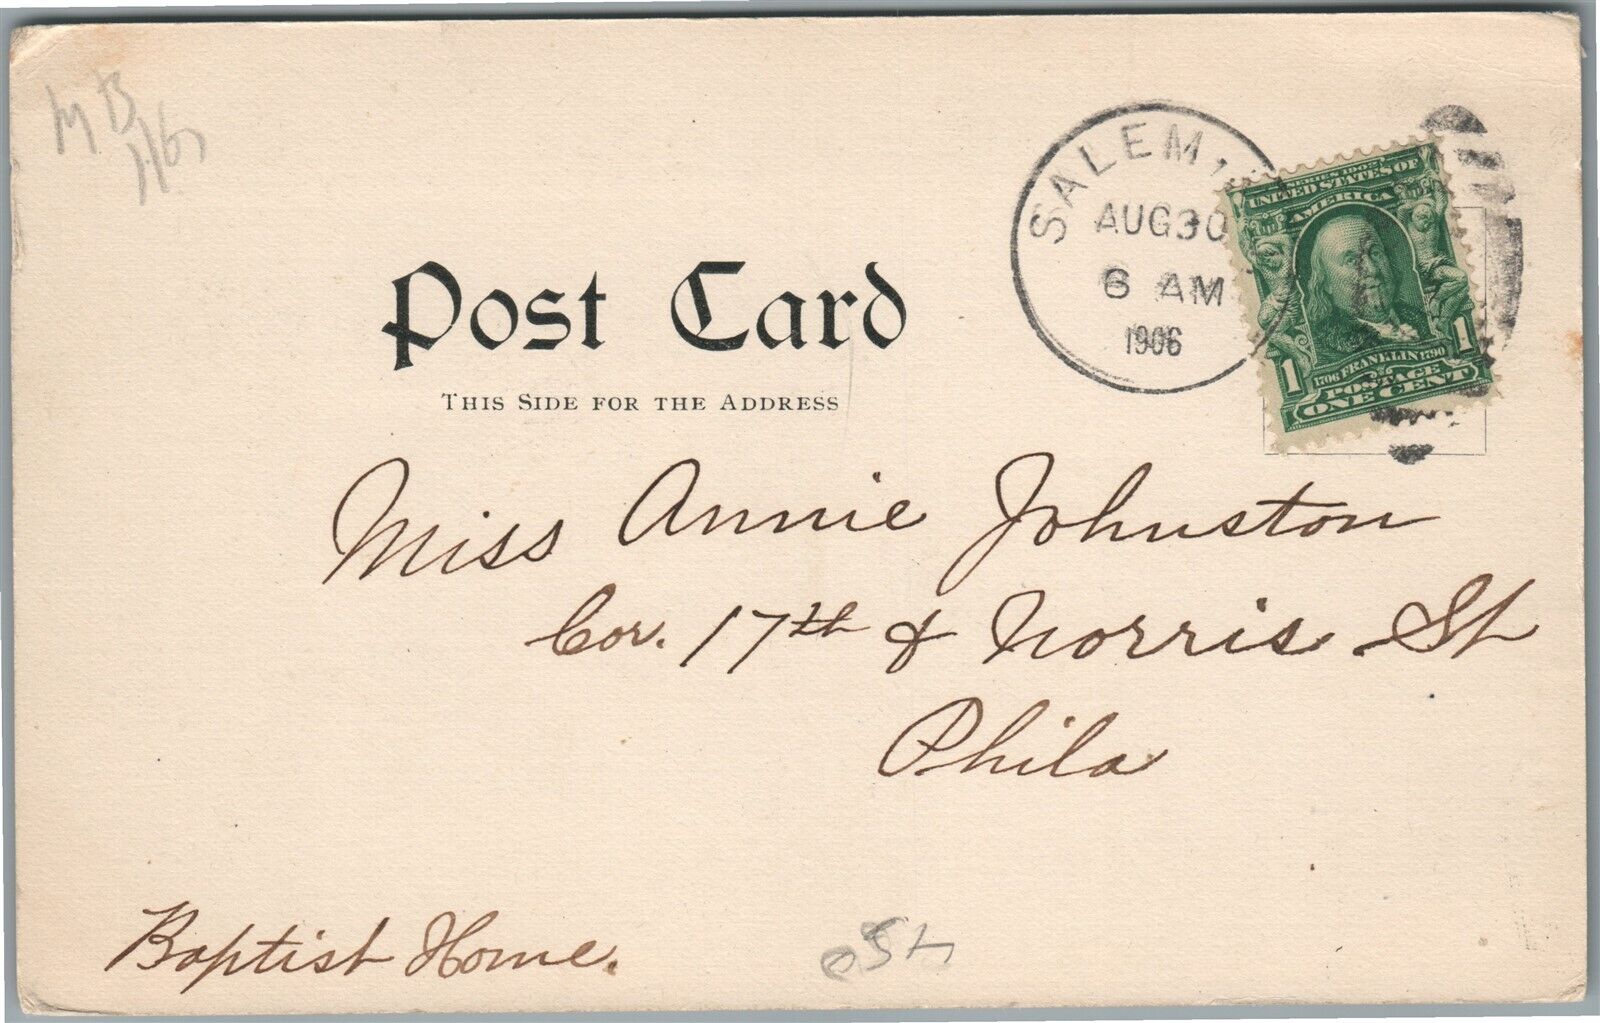 SALEM,
AUG 30
6 AM
1906
SERIES 1902
UNITED STATES OF
AMERICA
1706 FRANKLIN 1790
1 POSTAGE 1
ONE CENT
Post Card
THIS SIDE FOR THE ADDRESS
Miss Annie Johnston
Cor. 17th & Norris St
Phila
Baptist Home.